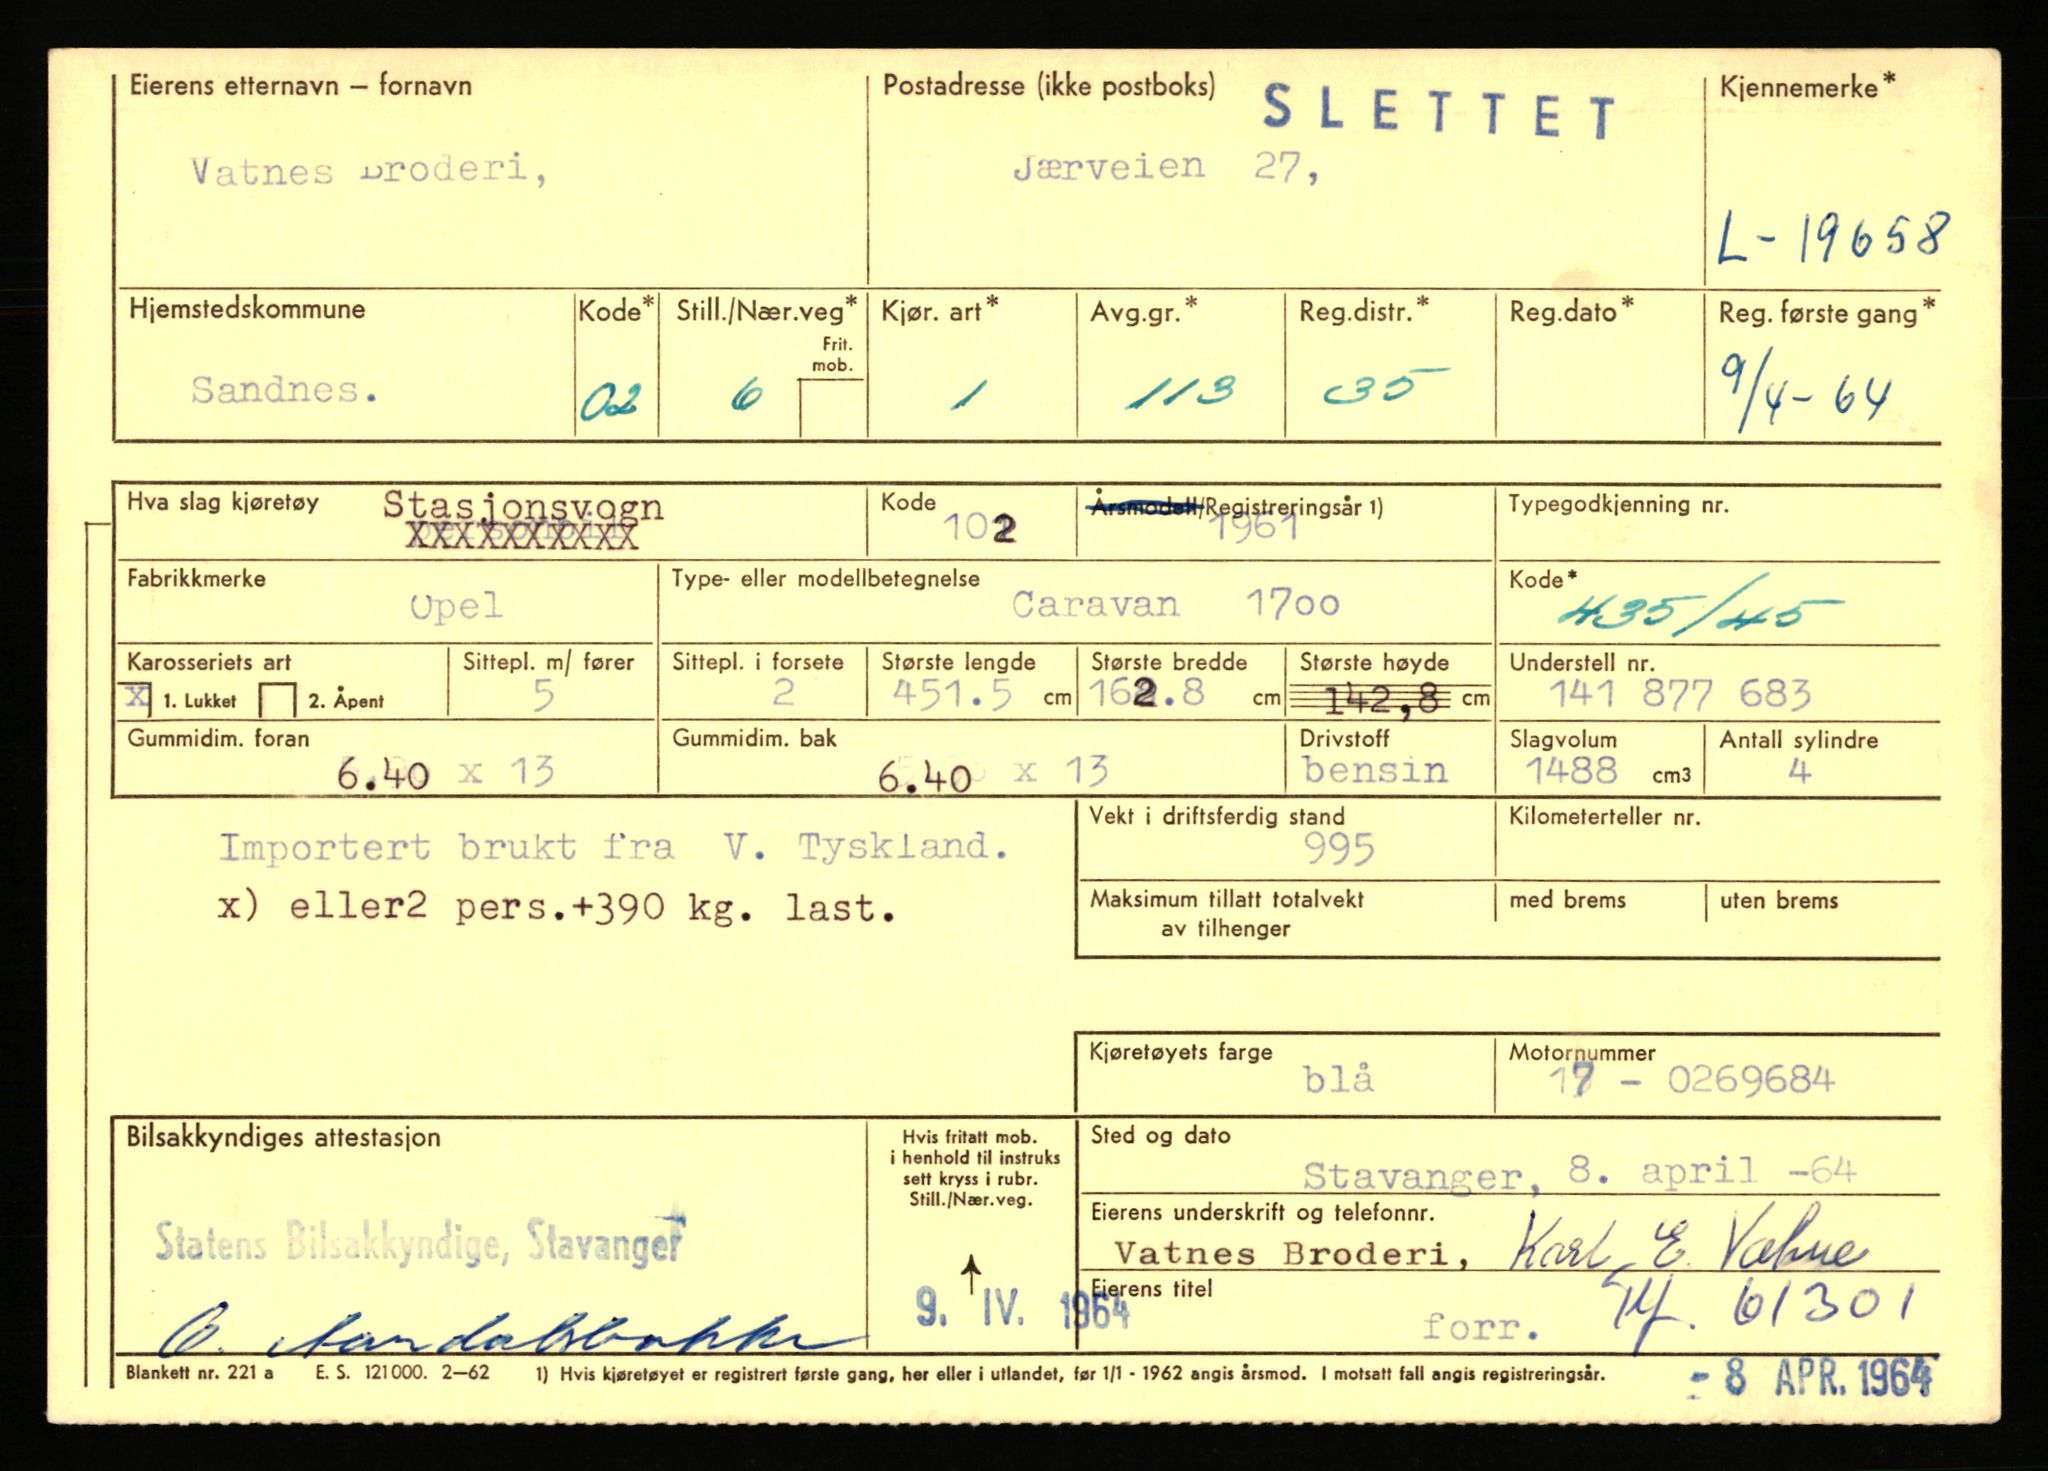 Eierens etternavn – fornavn
Postadresse (ikke postboks)
SLETTET
Kjennemerke*
Vatnes Broderi,
Jærveien 27,
L-19658
Hjemstedskommune
Kode*
Still./Nær.veg*
Frit.
mob.
Kjør. art*
Avg.gr.*
Reg.distr.*
Reg.dato*
Reg. første gang*
Sandnes.
02
6
1
113
35
9/4-64
Hva slag kjøretøy
Stasjonsvogn
XXXXXXXXXX
Kode
102
Årsmodell/Registreringsår 1)
1961
Typegodkjenning nr.
Fabrikkmerke
Opel
Type- eller modellbetegnelse
Caravan 1700
Kode*
435/45
Karosseriets art
X 1. Lukket
2. Åpent
Sittepl. m/ fører
5
Sittepl. i forsete
2
Største lengde
451.5 cm
Største bredde
162.8 cm
Største høyde
142,8 cm
Understell nr.
141 877 683
Gummidim. foran
6.40 x 13
Gummidim. bak
6.40 x 13
Drivstoff
bensin
Slagvolum
1488 cm3
Antall sylindre
4
Importert brukt fra V. Tyskland.
x) eller2 pers.+390 kg. last.
Vekt i driftsferdig stand
995
Kilometerteller nr.
Maksimum tillatt totalvekt
av tilhenger
med brems
uten brems
Kjøretøyets farge
blå
Motornummer
17 - 0269684
Bilsakkyndiges attestasjon
Statens Bilsakkyndige, Stavanger
Hvis fritatt mob.
i henhold til instruks
sett kryss i rubr.
Still./Nær.veg.
9. IV. 1964
Sted og dato
Stavanger, 8. april -64
Eierens underskrift og telefonnr.
Vatnes Broderi, Karl E.
Eierens titel
forr.
Tlf. 61301
Blankett nr. 221 a E. S. 121000. 2–62
1) Hvis kjøretøyet er registrert første gang, her eller i utlandet, før 1/1 - 1962 angis årsmod. I motsatt fall angis registreringsår.
- 8 APR. 1964